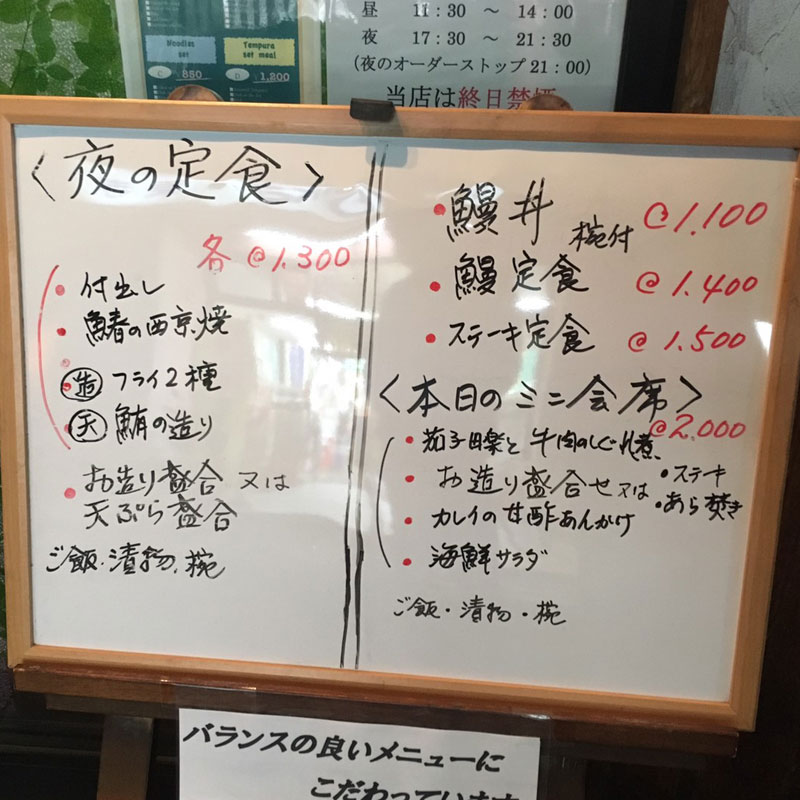 Noodles set
C ¥850
Tempura set meal
D ¥1,200
昼 11:30 ～ 14:00
夜 17:30 ～ 21:30
(夜のオーダーストップ 21:00)
当店は終日禁煙
〈夜の定食〉
各 @1.300
・付出し
・鰆の西京焼
・造 フライ2種
・天 鮪の造り
・お造り盛合 又は
天ぷら盛合
ご飯・漬物、椀
・鰻丼 椀付 @1.100
・鰻定食 @1.400
・ステーキ定食 @1.500
〈本日のミニ会席〉
@2.000
・茄子田楽と牛肉のしぐれ煮
・お造り盛合せ又は ・ステーキ
・あら焚き
・カレイの甘酢あんかけ
・海鮮サラダ
ご飯・漬物・椀
バランスの良いメニューに
こだわっています